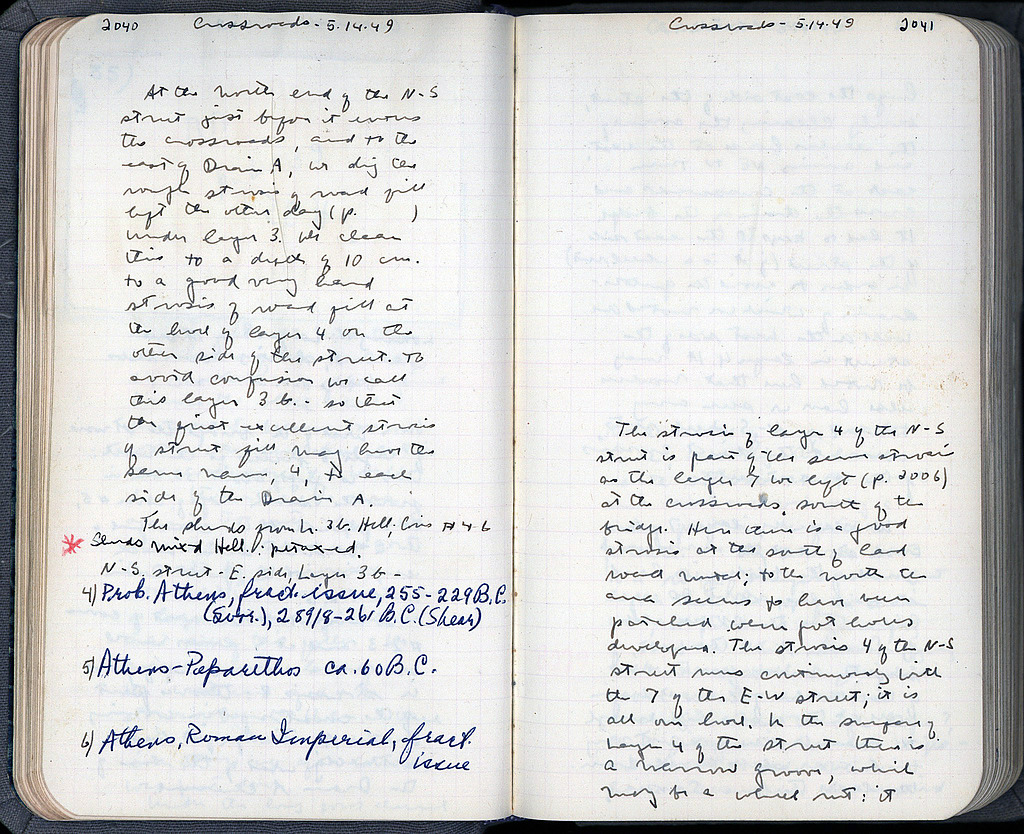 2040 Crossroads - 5.14.49
At the north end of the N-S
street just before it enters
the crossroads, and to the
east of Drain A, we dig the
rough strosis of road fill
left the other day (p.      )
under layer 3. We clean
this to a depth of 10 cm.
to a good very hard
strosis of road fill at
the level of layer 4 on the
other side of the street. To
avoid confusion we call
this layer 3b. - so that
the first excellent strosis
of street fill may have the
same name, 4, to each
side of the Drain A.
The sherds from L. 3b. Hell. Coins #4-6
* Sherds mixd Hell.: potaxed.
N-S. street - E. side, Layer 3b -
4) Prob. Athens, fract. issue, 255-229 B.C.
(Svor.), 289/8-261 B.C. (Shear)
5) Athens-Peparethos ca. 60 B.C.
6) Athens, Roman Imperial, fract.
issue
Crossroads - 5.14.49 2041
The strosis of layer 4 of the N-S
street is part of the same strosis
as the layer 7 we left (p. 2006)
at the crossroads, south of the
bridge. Here there is good
strosis at the south of hard
road metal; to the north the
area seems to have been
patched where pot holes
developed. The strosis 4 of the N-S
street runs continuously with
the 7 of the E-W street; it is
all one level. In the surface of
Layer 4 of the street there is
a narrow groove, which
may be a wheel rut: it